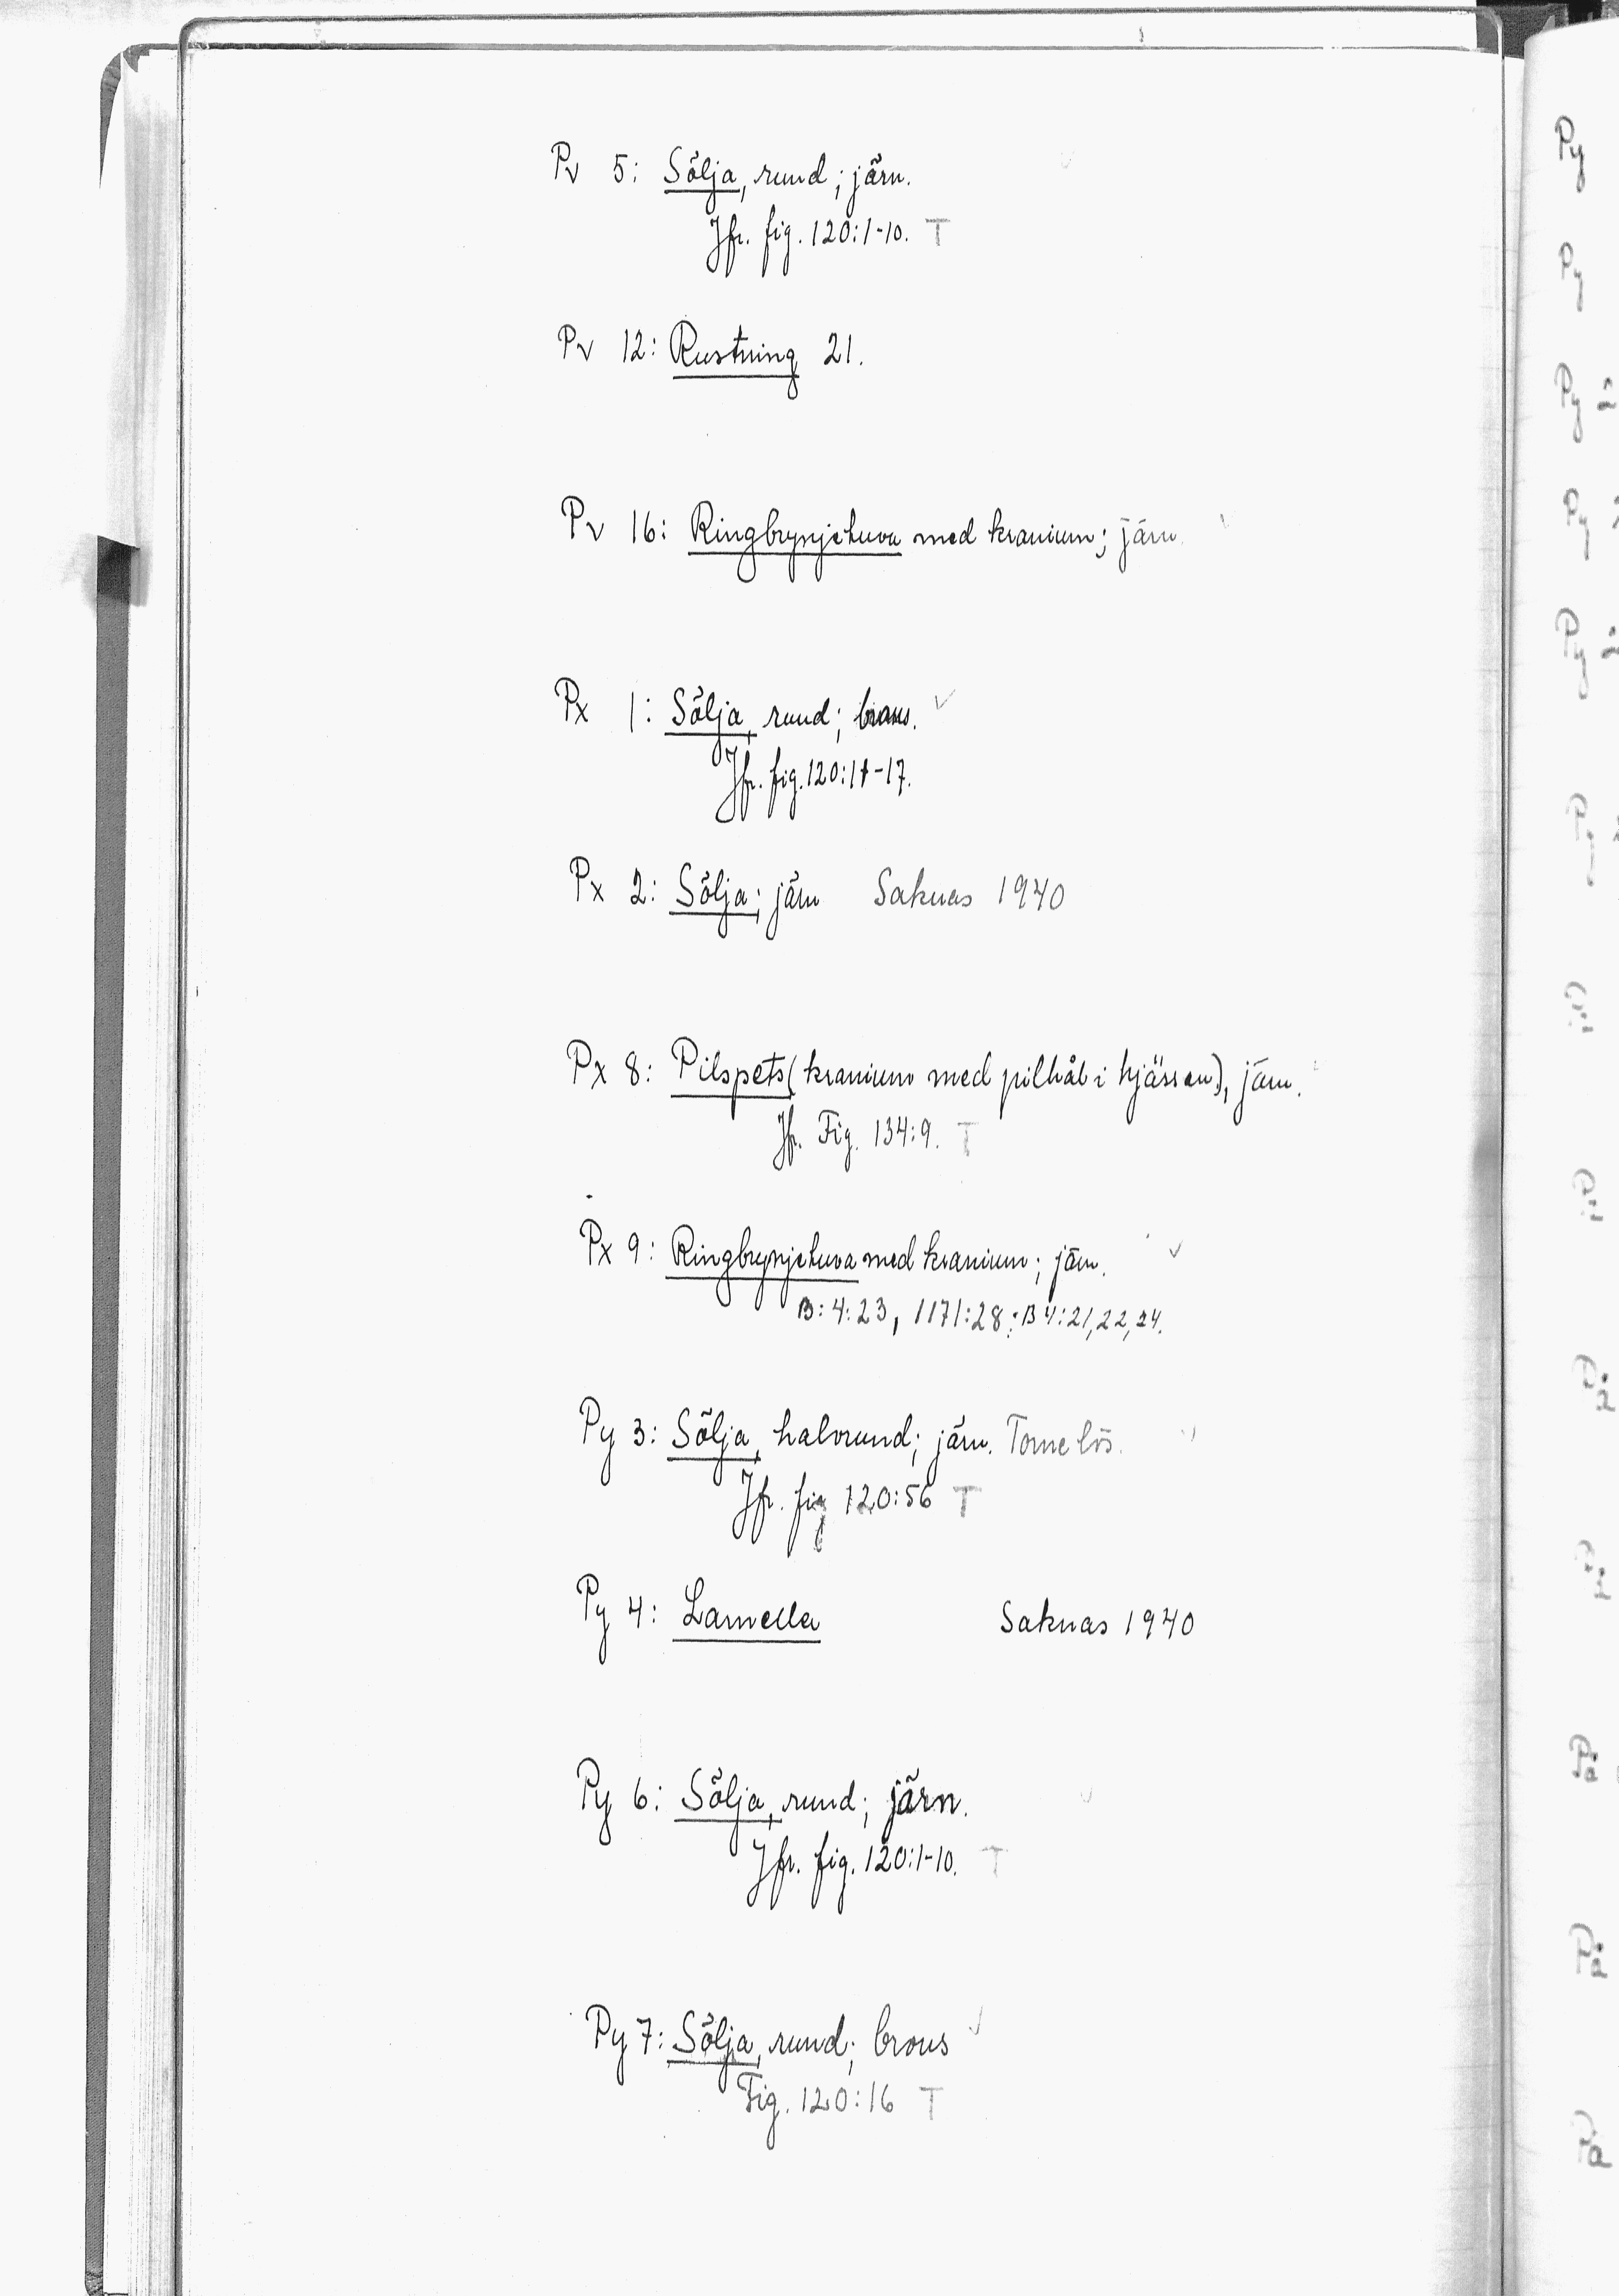 Pv 5: Sölja, rund; järn.
Jfr. fig. 120:1-10. T
Pv 12: Rustning 21.
Pv 16: Ringbrynjehuva med kranium; järn.
Px 1: Sölja, rund; brons.
Jfr. fig. 120:11-17.
Px 2: Sölja; järn Saknas 1940
Px 8: Pilspets (kranium med pilhål i hjässan), järn.
Jfr. Fig. 134:9. T
Px 9: Ringbrynjehuva med kranium; järn.
B:4:23, 1171:28; B4:21,22,24.
Py 3: Sölja, halvrund; järn. Torne lös.
Jfr. fig 120:56 T
Py 4: Lamella Saknas 1940
Py 6: Sölja, rund; järn.
Jfr. fig. 120:1-10. T
Py 7: Sölja, rund; brons
Fig. 120:16 T
Py
Py
Py
Py
Py